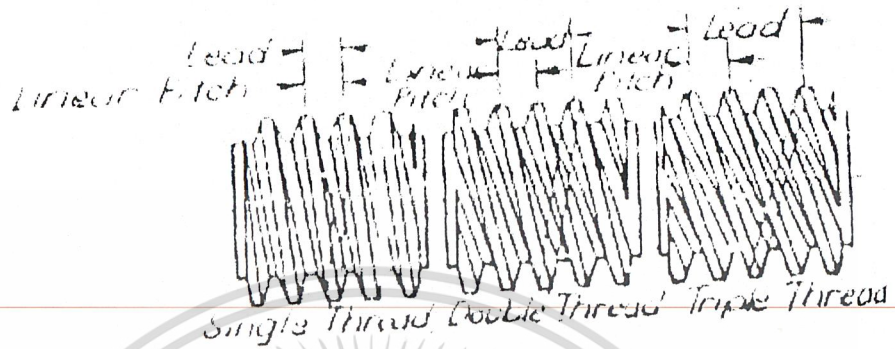 Lead
Linear Pitch
Lead
Linear
Pitch
Lead
Linear
Pitch
Single Thread Double Thread Triple Thread